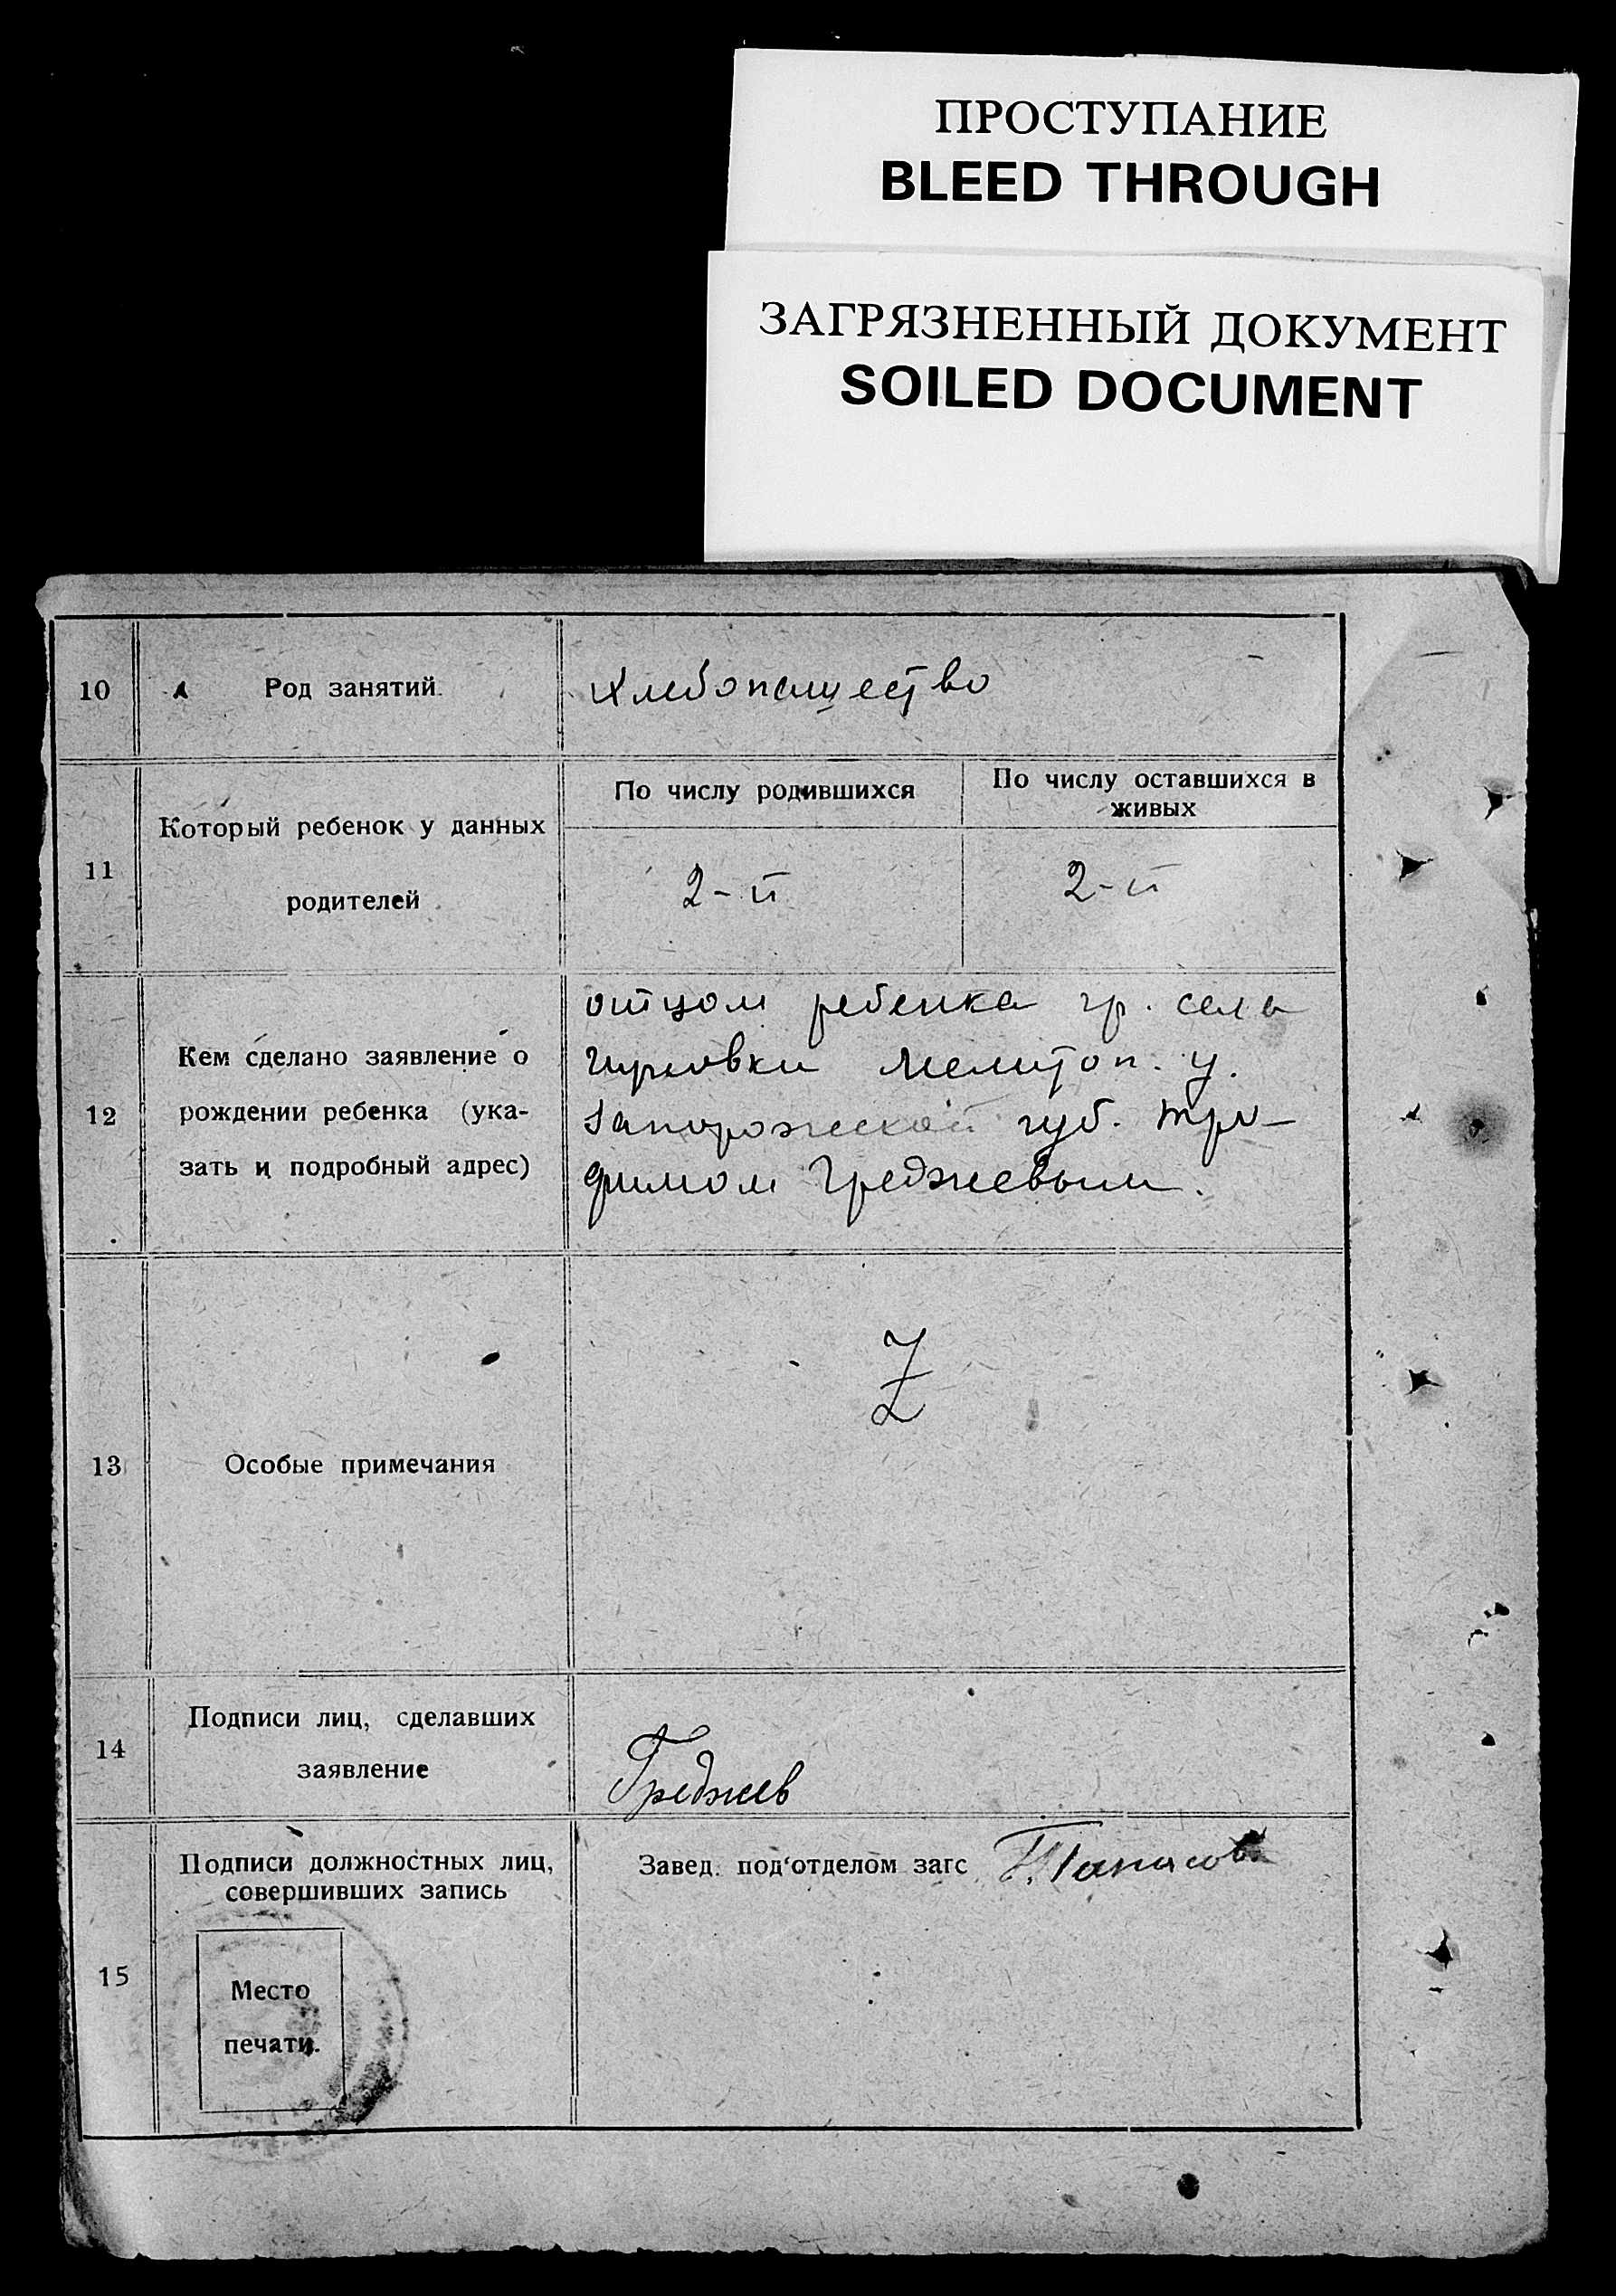 ПРОСТУПАНИЕ
BLEED THROUGH
ЗАГРЯЗНЕННЫЙ ДОКУМЕНТ
SOILED DOCUMENT
10 Род занятий. Хлебопашество
11 Который ребенок у данных
родителей
По числу родившихся
По числу оставшихся в
живых
2-й
2-й
12 Кем сделано заявление о
рождении ребенка (ука-
зать и подробный адрес)
отцом ребенка гр. села
Гирсовки Мелитоп. у.
Запорожской губ. Тро-
фимом Греджевым.
13 Особые примечания
Z
14 Подписи лиц, сделавших
заявление
Греджев
15 Подписи должностных лиц,
совершивших запись
Место
печати.
Завед. под'отделом загс